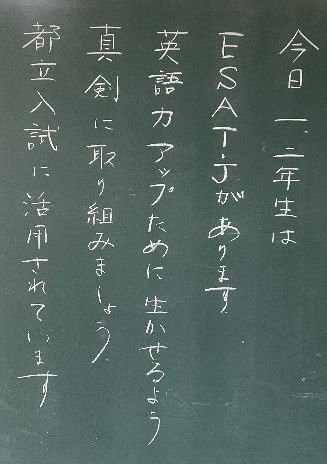 今日一、二年生は
ESAT-Jがあります
英語力アップために生かせるよう
真剣に取り組みましょう
都立入試に活用されています